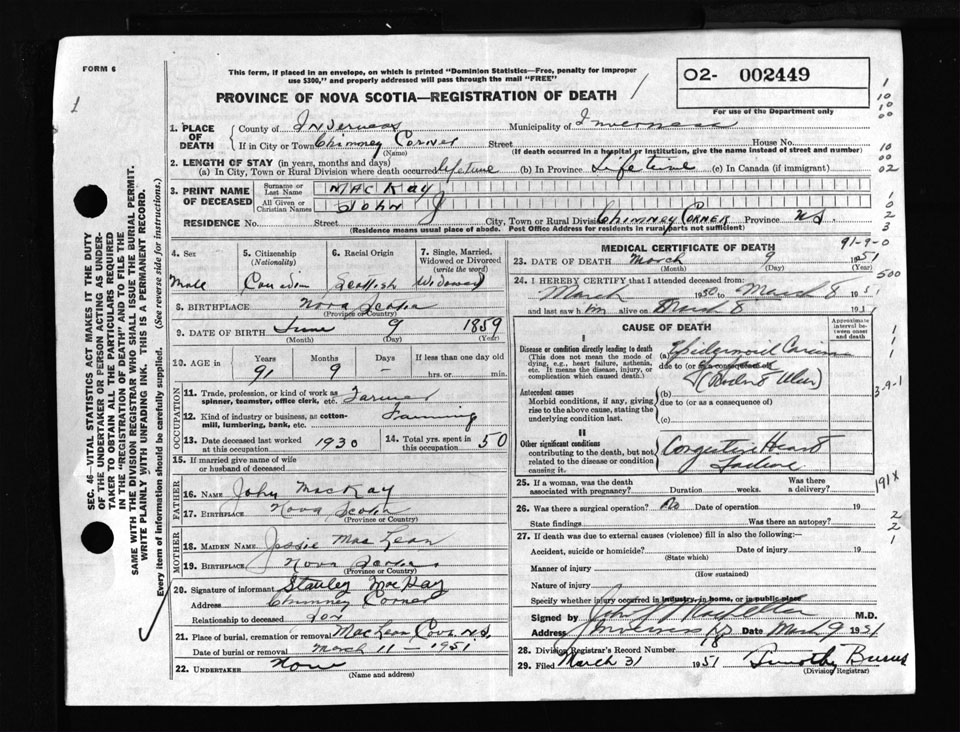 FORM 6
This form, if placed in an envelope, on which is printed "Dominion Statistics—Free, penalty for improper
use $300," and properly addressed will pass through the mail "FREE"
02- 002449
For use of the Department only
PROVINCE OF NOVA SCOTIA—REGISTRATION OF DEATH
1. PLACE OF DEATH County of Inverness Municipality of Inverness
If in City or Town Chimney Corner Street House No.
(Name) (If death occurred in a hospital or institution, give the name instead of street and number)
2. LENGTH OF STAY (in years, months and days)
(a) In City, Town or Rural Division where death occurred lifetime (b) In Province Lifetime (c) In Canada (if immigrant)
3. PRINT NAME OF DECEASED
Surname or Last Name MacKay
All Given or Christian Names John J
RESIDENCE No. Street City, Town or Rural Division Chimney Corner Province NS
(Residence means usual place of abode. Post Office Address for residents in rural parts not sufficient)
4. Sex 5. Citizenship (Nationality) 6. Racial Origin 7. Single, Married, Widowed or Divorced (write the word)
Male Canadian Scottish Widowed
8. BIRTHPLACE Nova Scotia
(Province or Country)
9. DATE OF BIRTH June 9 1859
(Month) (Day) (Year)
10. AGE in Years Months Days If less than one day old
91 9 – hrs. or min.
OCCUPATION
11. Trade, profession, or kind of work as spinner, teamster, office clerk, etc. Farmer
12. Kind of industry or business, as cotton-mill, lumbering, bank, etc. Farming
13. Date deceased last worked at this occupation 1930 14. Total yrs. spent in this occupation 50
15. If married give name of wife or husband of deceased
FATHER
16. NAME John MacKay
17. BIRTHPLACE Nova Scotia
(Province or Country)
MOTHER
18. MAIDEN NAME Jessie MacLean
19. BIRTHPLACE Nova Scotia
(Province or Country)
20. Signature of informant Stanley MacKay
Address Chimney Corner
Relationship to deceased Son
21. Place of burial, cremation or removal MacLean Cove N.S.
Date of burial or removal March 11 – 1951
22. UNDERTAKER None
(Name and address)
MEDICAL CERTIFICATE OF DEATH
91-9-0
23. DATE OF DEATH March 9 1951
(Month) (Day) (Year)
24. I HEREBY CERTIFY that I attended deceased from:
March 1950 to March 8 1951
and last saw him alive on March 8 1951
CAUSE OF DEATH
Approximate interval between onset and death
I
Disease or condition directly leading to death (a)
(This does not mean the mode of dying, e.g., heart failure, asthenia, etc. It means the disease, injury, or complication which caused death.)
due to (or as a consequence of)
(Rodent Ulcer)
Antecedent causes (b)
Morbid conditions, if any, giving rise to the above cause, stating the underlying condition last.
due to (or as a consequence of)
(c)
II
Other significant conditions contributing to the death, but not related to the disease or condition causing it.
Congestive Heart
Failure
25. If a woman, was the death associated with pregnancy? Duration weeks. Was there a delivery?
26. Was there a surgical operation? No Date of operation 19
State findings Was there an autopsy?
27. If death was due to external causes (violence) fill in also the following:—
Accident, suicide or homicide? Date of injury 19
(State which)
Manner of injury
(How sustained)
Nature of injury
Specify whether injury occurred in industry, in home, or in public place
Signed by M.D.
Address Inverness NS Date March 9 1951
28. Division Registrar's Record Number
29. Filed March 31 1951 Timothy Burns
(Division Registrar)
SEC. 46—VITAL STATISTICS ACT MAKES IT THE DUTY
OF THE UNDERTAKER OR PERSON ACTING AS UNDER-
TAKER TO OBTAIN ALL THE PARTICULARS REQUIRED
IN THE "REGISTRATION OF DEATH" AND TO FILE THE
SAME WITH THE DIVISION REGISTRAR WHO SHALL ISSUE THE BURIAL PERMIT.
WRITE PLAINLY WITH UNFADING INK. THIS IS A PERMANENT RECORD.
Every item of information should be carefully supplied. (See reverse side for instructions.)